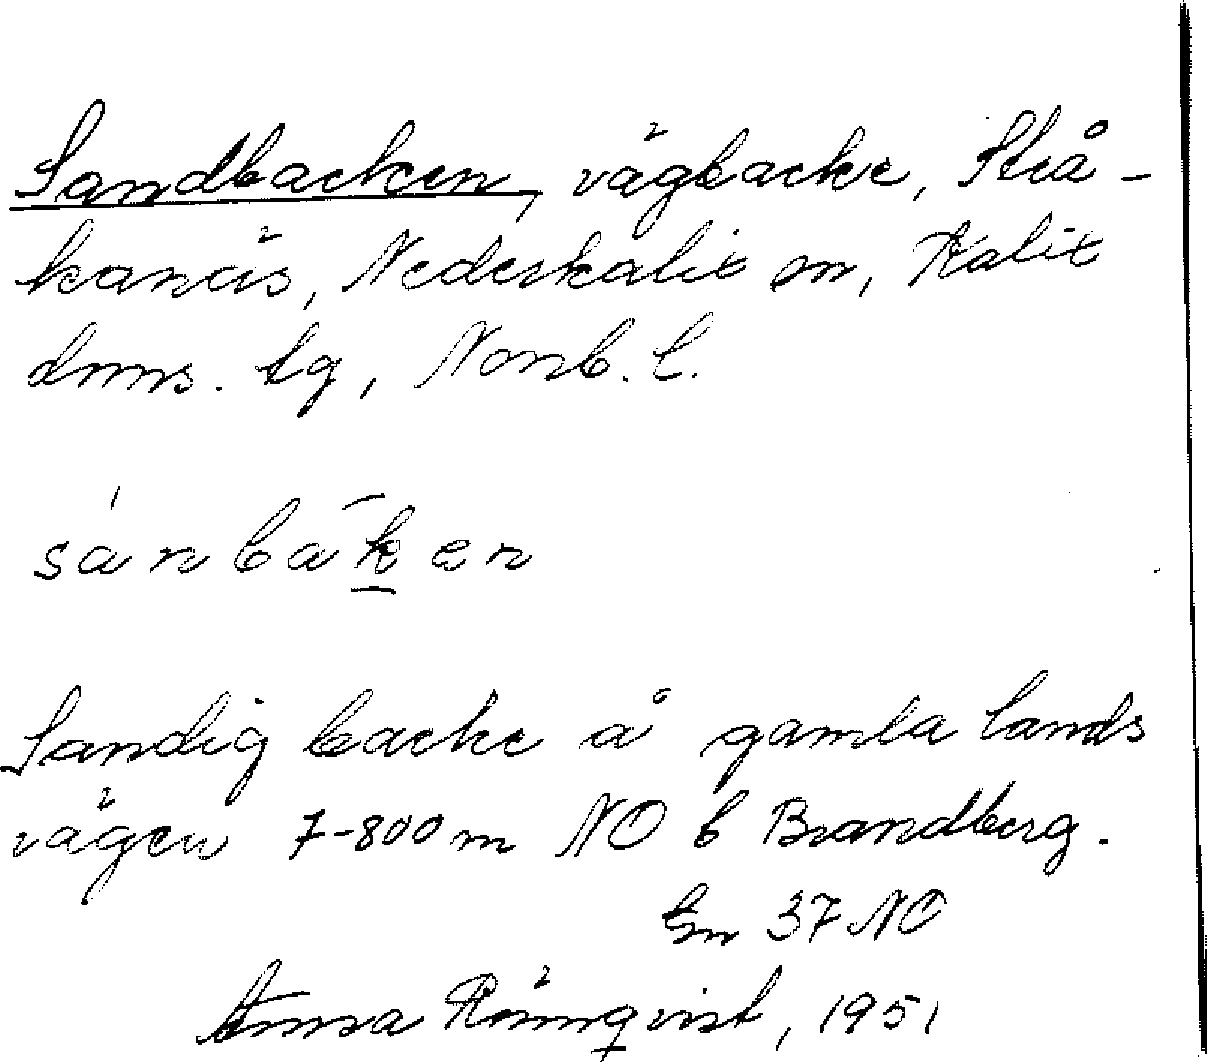 Sandbacken, vägbacke, Strå-
kanäs, Nederkalix sn, Kalix
dmns. tg, Norrb. l.
sánbák̲en
Sandig backe å gamla lands
vägen 7-800 m NO b Brandberg.
Gn 37 NO
Anna Rönnqvist, 1951